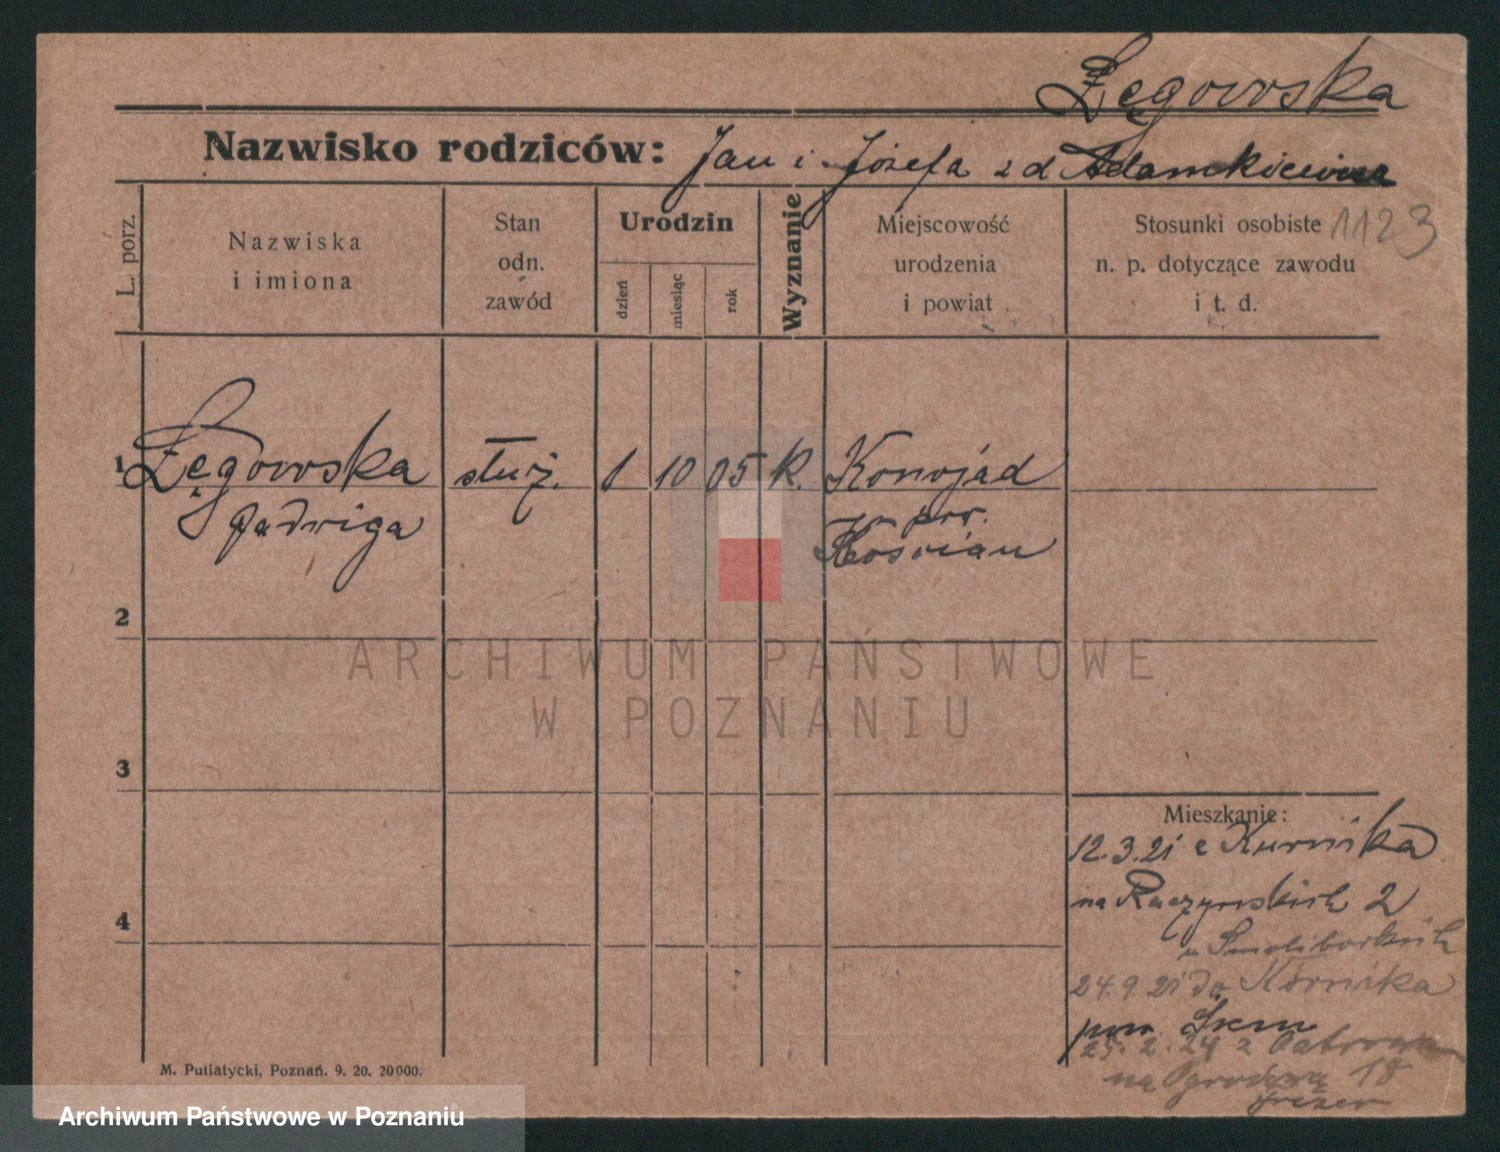 Łęgowska
Nazwisko rodziców: Jan i Józefa z d Adamkiewicz
1123
L. porz.
Nazwiska
i imiona
Stan
odn.
zawód
Urodzin
dzień
miesiąc
rok
Wyznanie
Miejscowość
urodzenia
i powiat
Stosunki osobiste
n. p. dotyczące zawodu
i t. d.
1 Łęgowska służ. 1 10 05 k. Konojad
Jadwiga pow.
Kościan
2
3
4
Mieszkanie:
12.3.21 z Kurnika
na Raczyńskich 2
u
24.9.21 do Kórnika
pow. Śrem
25.2.24 z Ostrowa
na Ogrodową 18
M. Putiatycki, Poznań. 9. 20. 20000.
ARCHIWUM PAŃSTWOWE
W POZNANIU
Archiwum Państwowe w Poznaniu